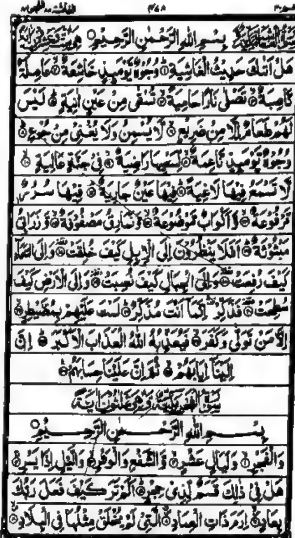 سورة الغاشية بسم الله الرحمن الرحيم
هَلْ أَتَىٰكَ حَدِيثُ الْغَاشِيَةِ وُجُوهٌ يَوْمَئِذٍ خَاشِعَةٌ عَامِلَةٌ
نَاصِبَةٌ تَصْلَىٰ نَارًا حَامِيَةً تُسْقَىٰ مِنْ عَيْنٍ آنِيَةٍ لَيْسَ
لَهُمْ طَعَامٌ إِلَّا مِنْ ضَرِيعٍ لَا يُسْمِنُ وَلَا يُغْنِي مِنْ جُوعٍ
وُجُوهٌ يَوْمَئِذٍ نَاعِمَةٌ لِسَعْيِهَا رَاضِيَةٌ فِي جَنَّةٍ عَالِيَةٍ
لَا تَسْمَعُ فِيهَا لَاغِيَةً فِيهَا عَيْنٌ جَارِيَةٌ فِيهَا سُرُرٌ
مَرْفُوعَةٌ وَأَكْوَابٌ مَوْضُوعَةٌ وَنَمَارِقُ مَصْفُوفَةٌ وَزَرَابِيُّ
مَبْثُوثَةٌ أَفَلَا يَنْظُرُونَ إِلَى الْإِبِلِ كَيْفَ خُلِقَتْ وَإِلَى السَّمَاءِ
كَيْفَ رُفِعَتْ وَإِلَى الْجِبَالِ كَيْفَ نُصِبَتْ وَإِلَى الْأَرْضِ كَيْفَ
سُطِحَتْ فَذَكِّرْ إِنَّمَا أَنْتَ مُذَكِّرٌ لَسْتَ عَلَيْهِمْ بِمُصَيْطِرٍ
إِلَّا مَنْ تَوَلَّىٰ وَكَفَرَ فَيُعَذِّبُهُ اللَّهُ الْعَذَابَ الْأَكْبَرَ إِنَّ
إِلَيْنَا إِيَابَهُمْ ثُمَّ إِنَّ عَلَيْنَا حِسَابَهُمْ
بسم الله الرحمن الرحيم
وَالْفَجْرِ وَلَيَالٍ عَشْرٍ وَالشَّفْعِ وَالْوَتْرِ وَاللَّيْلِ إِذَا يَسْرِ
هَلْ فِي ذَٰلِكَ قَسَمٌ لِذِي حِجْرٍ أَلَمْ تَرَ كَيْفَ فَعَلَ رَبُّكَ
بِعَادٍ إِرَمَ ذَاتِ الْعِمَادِ الَّتِي لَمْ يُخْلَقْ مِثْلُهَا فِي الْبِلَادِ